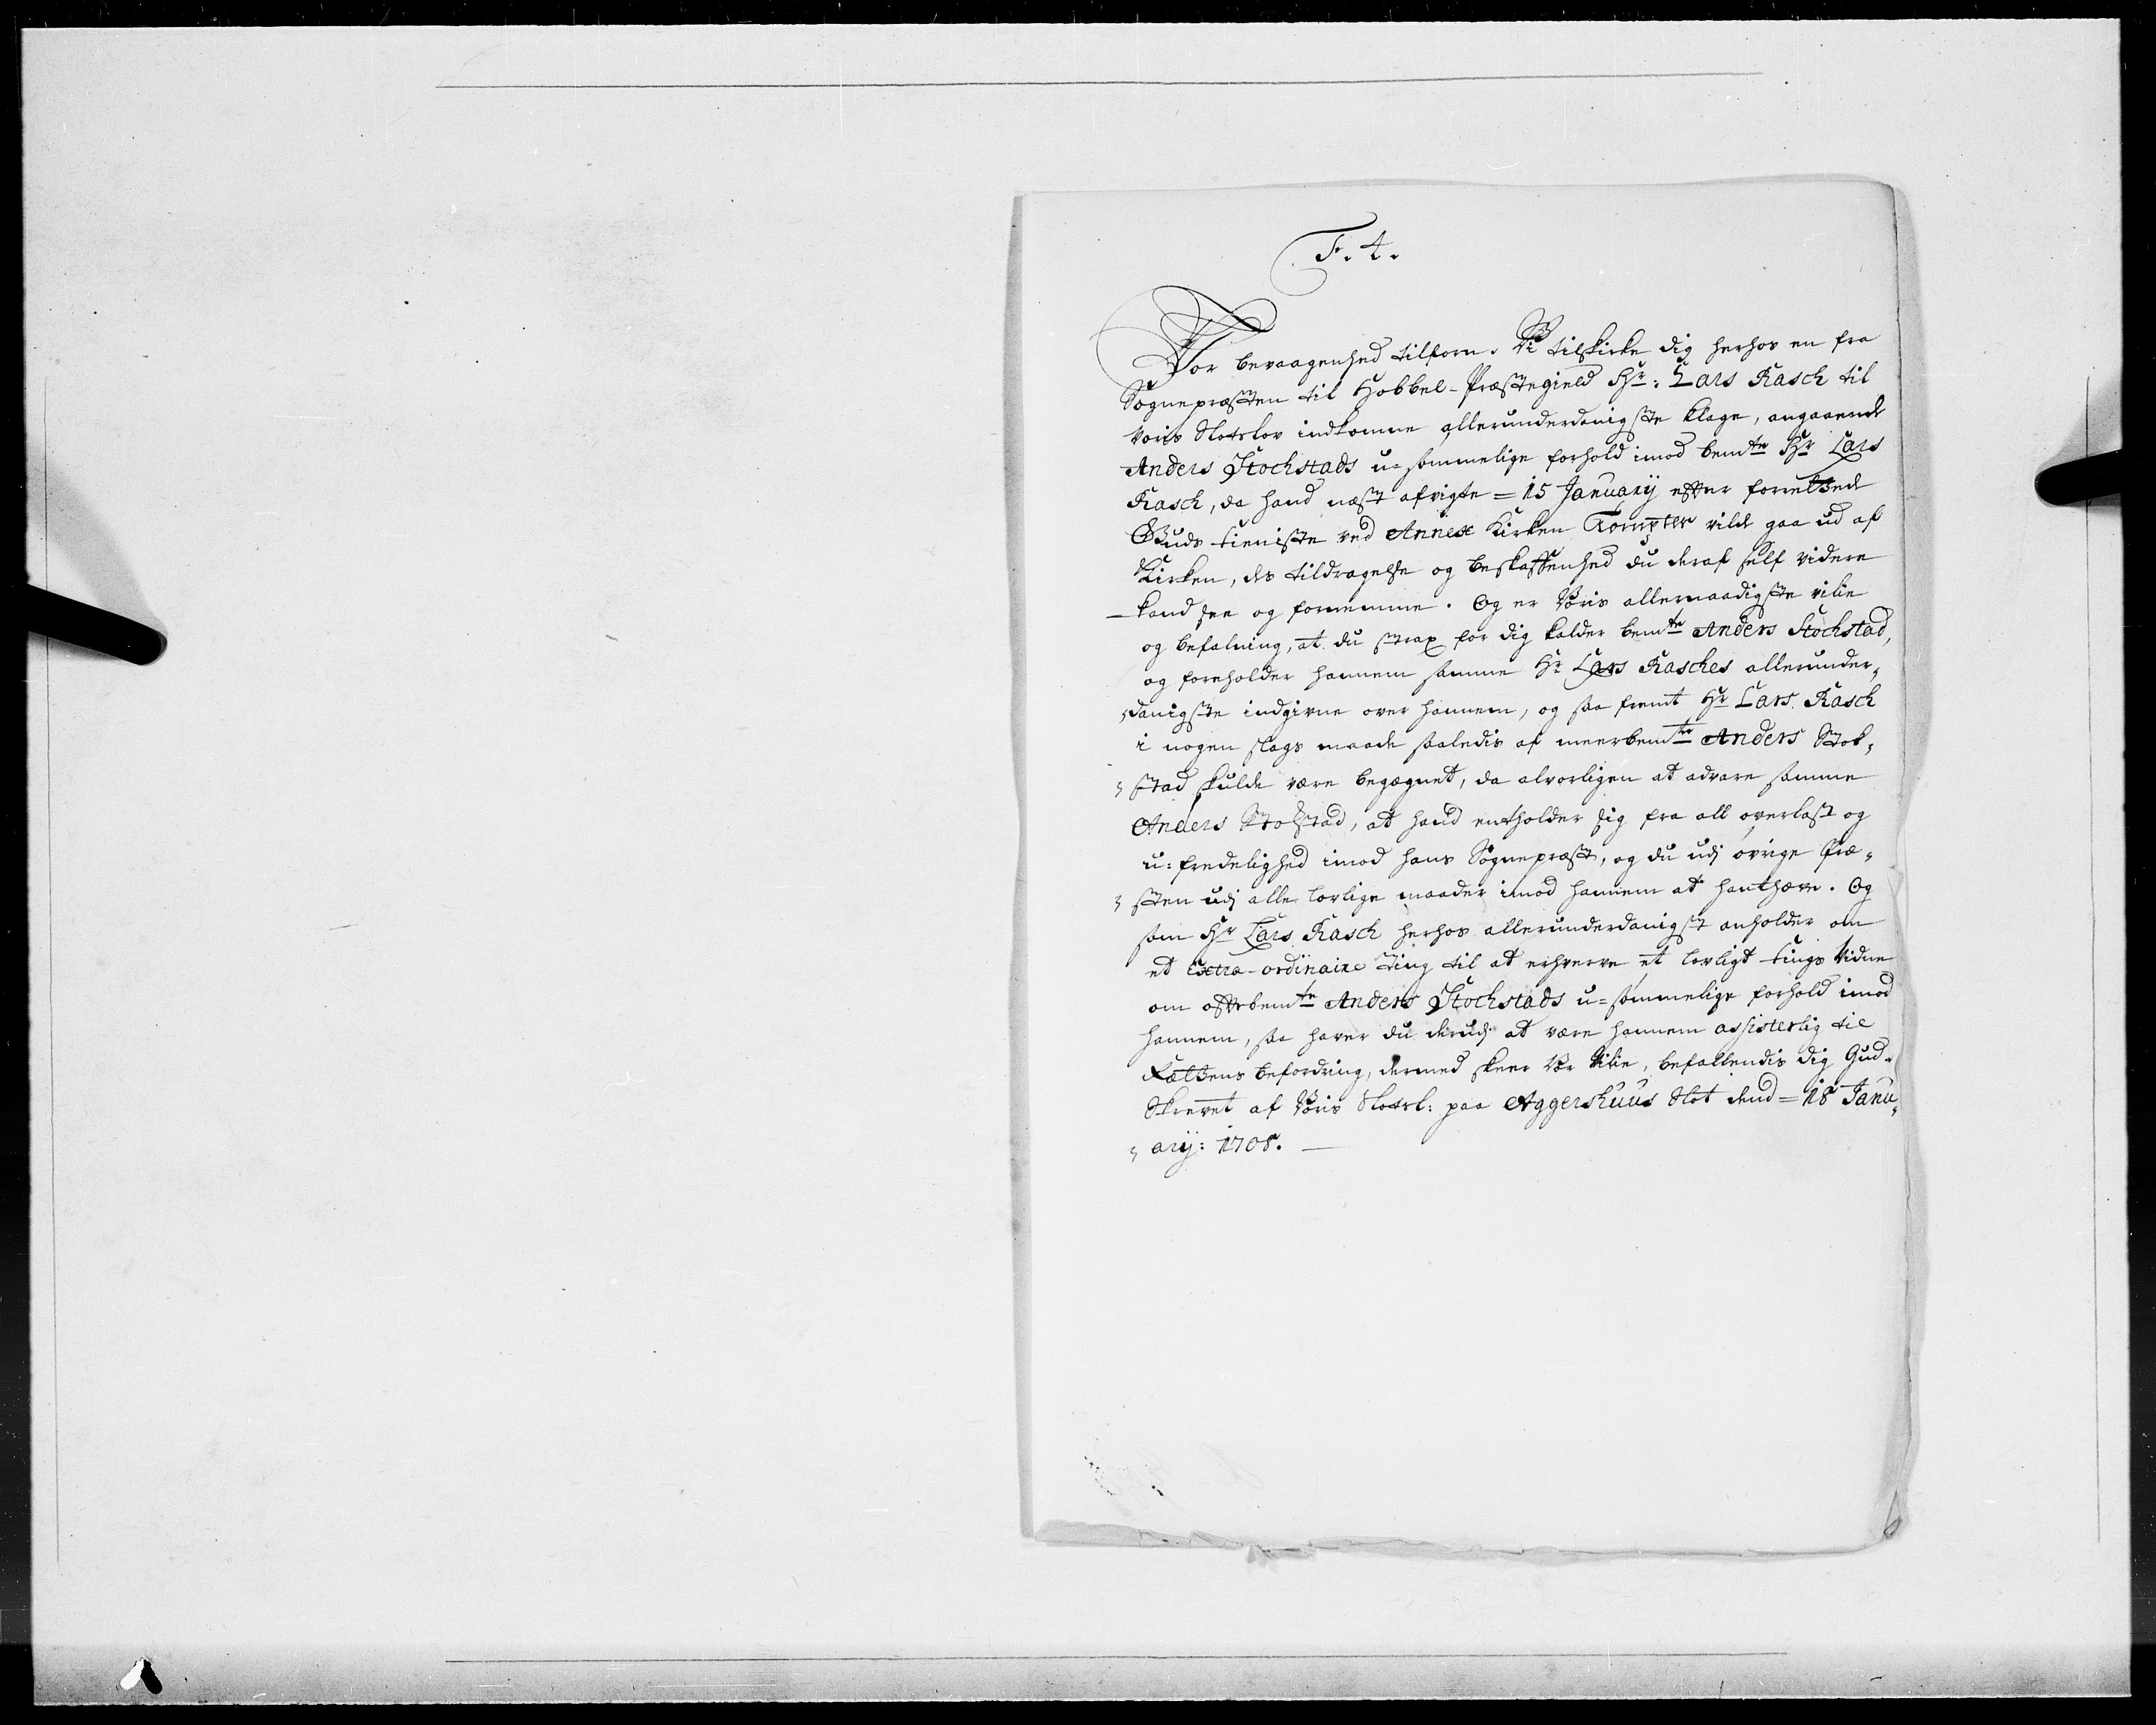 F. 4.
Vor bevaagenhed tilforn. Vi tilskicke dig herhos en fra
Sognepræsten til Hobbel-Præstegield Hr: Lars Rasch til
Voris Slotslov indkomne allerunderdanigste klage, angaaende
Anders Stochstads u-sømmelige forhold imod bemte Hr Lars
Rasch, da hand næst afvigte = 15 January efter forrettede
Guds tieniste ved Annex Kirken vilde gaa ud af
Kirken, des tildragelse og beskaffenhed du deraf self videre
kand see og fornemme. Og er Voris allernaadigste villie
og befalning, at du strax for dig kalder bemte Anders Stochstad,
og foreholder hannem samme Hr Lars Rasches allerunder„
„danigste indgivne over hannem, og saa fremt Hr Lars Rasch
i nogen slags maade saaledis af meerbemte Anders Stok„
„stad skulde være begægnet, da alvorligen at advare samme
Anders Stokstad, at hand entholder sig fra all overlast og
u-fredelighed imod hans Sognepræst, og du udj øvrige Præ„
„sten udj alle lovlige maader imod hannem at hanthæve. Og
som Hr Lars Rasch herhos allerunderdanigst anholder om
et Extra-ordinaire Ting til at erhverve et lovligt tings vidne
om oftebemte Anders Stochstads u-sømmelige forhold imod
hannem, saa haver du derudj at være hannem assisterlig til
Rættens befordring, dermed skeer Vor Villie, befallendis dig Gud.
Skrevet af Voris Slotsl: paa Aggershuus Slot dend = 18 Janu„
„ary: 1708.